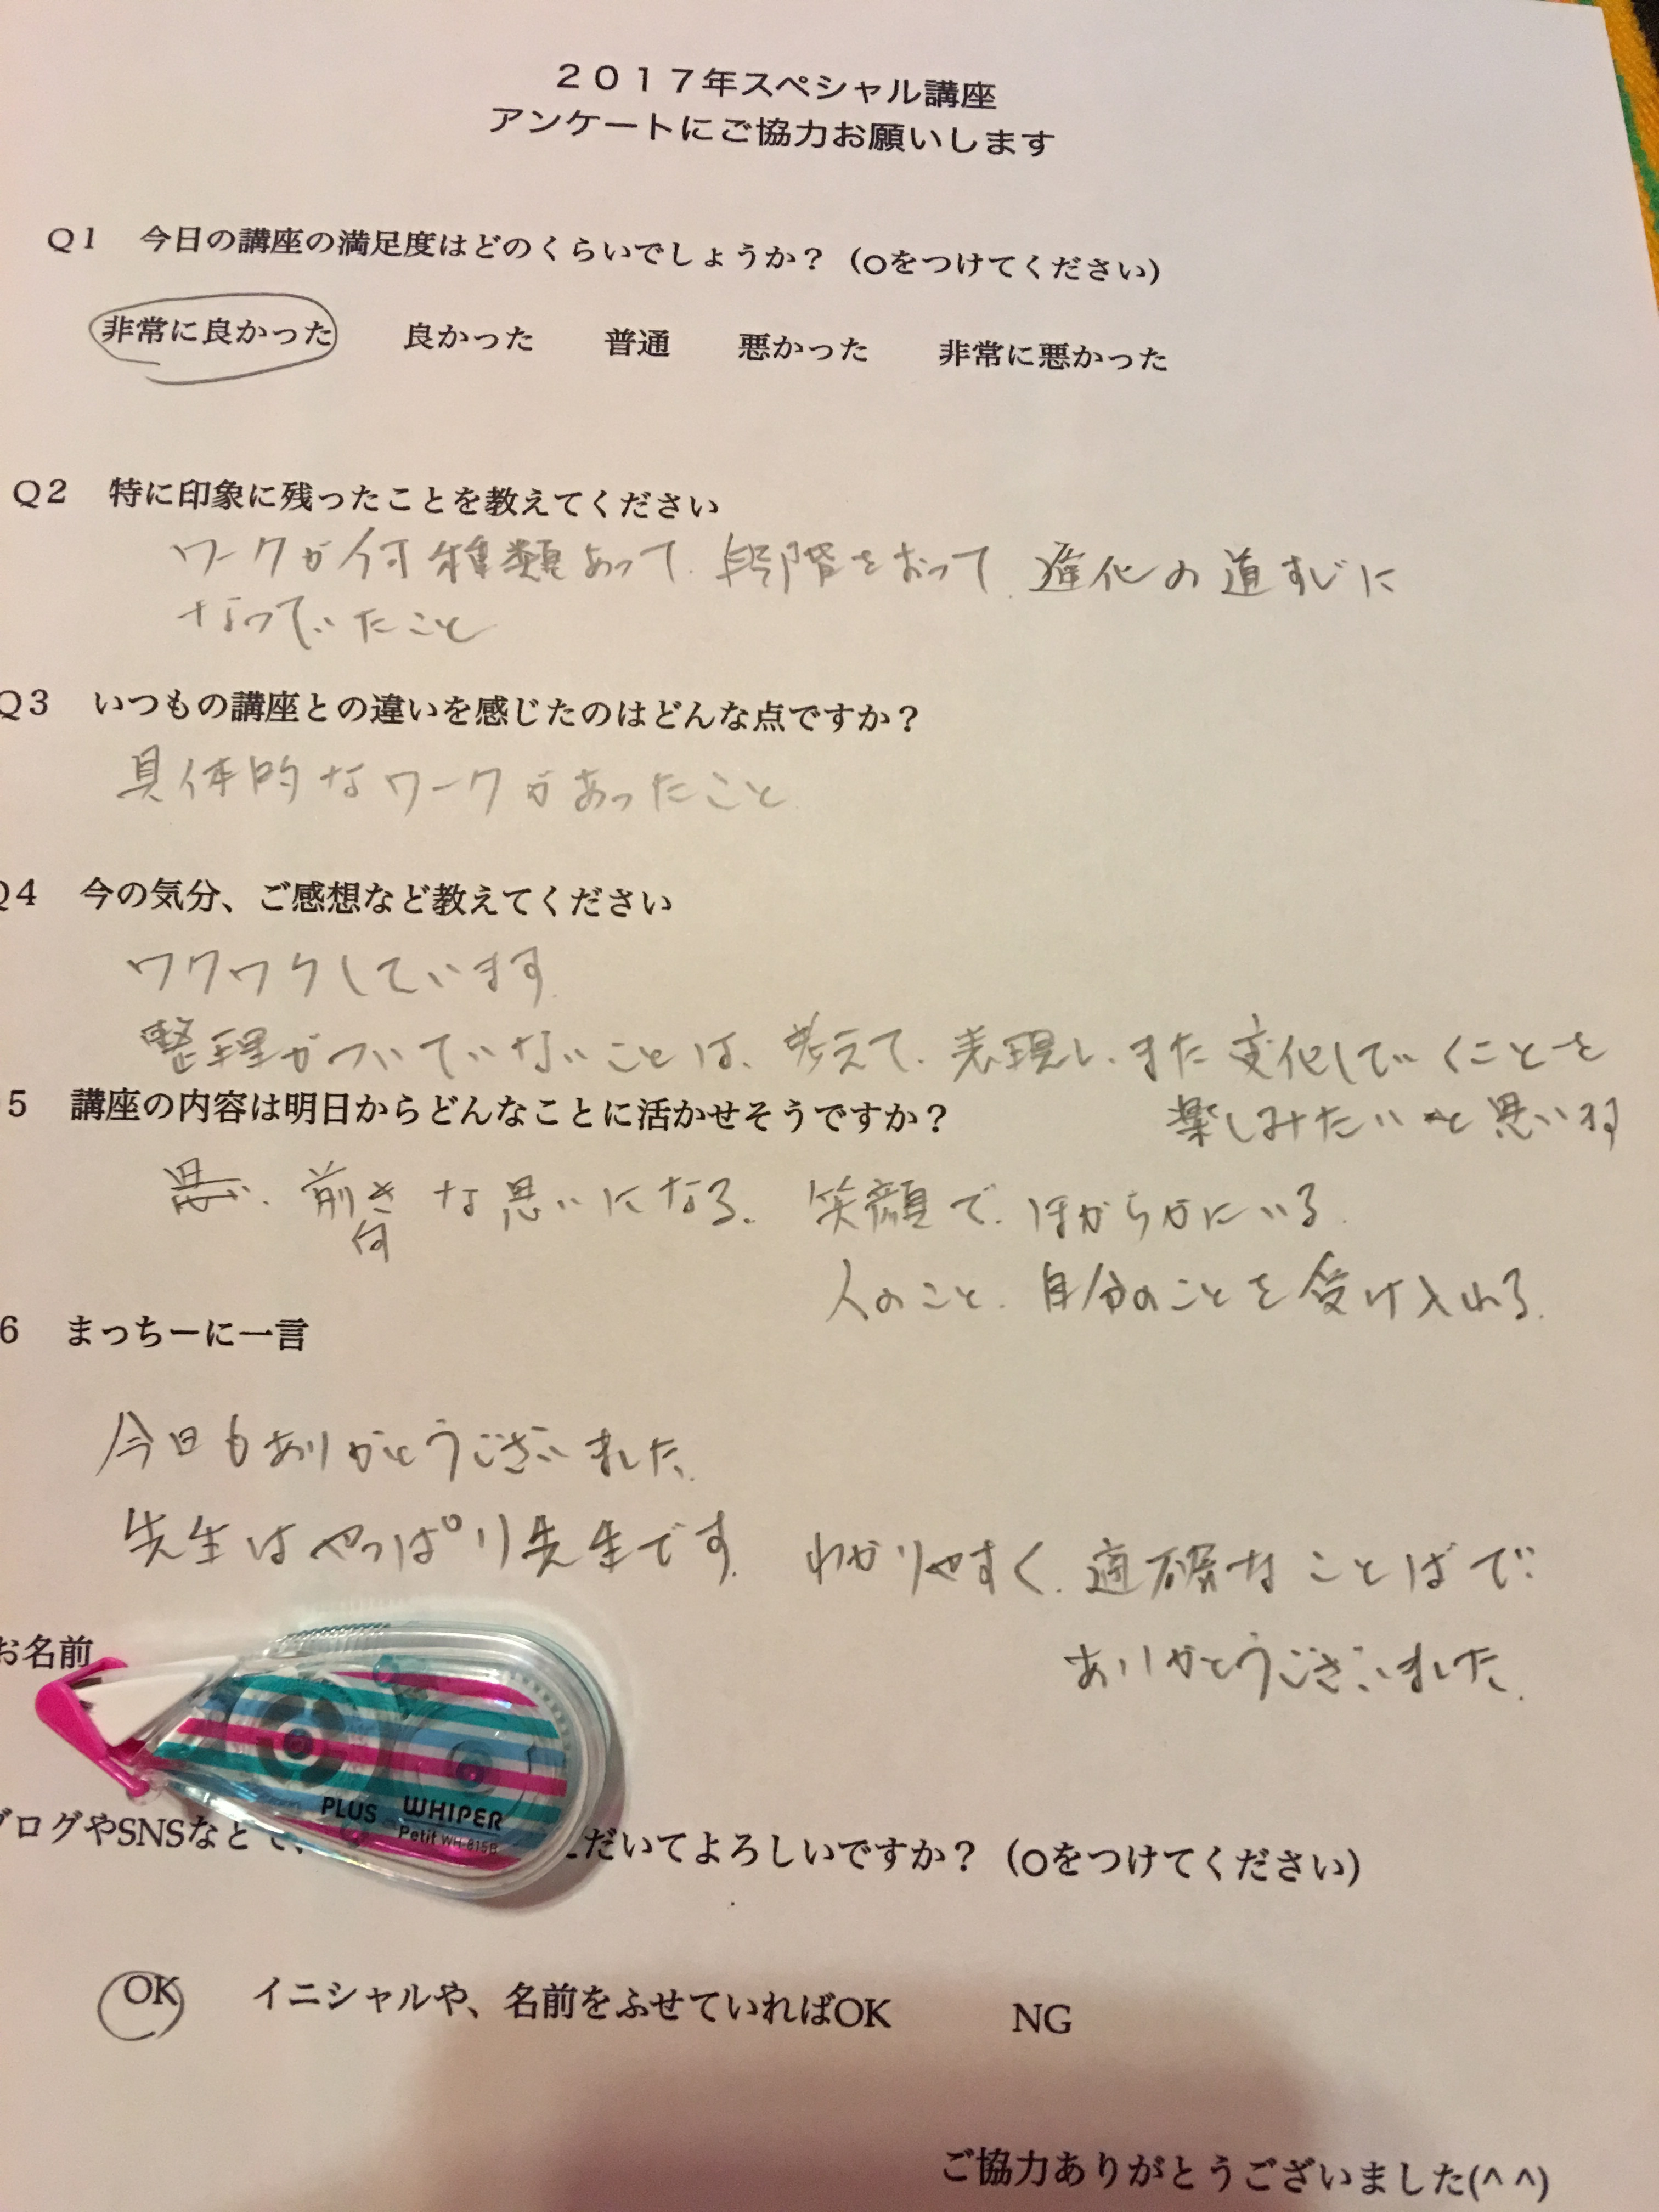 ２０１７年スペシャル講座
アンケートにご協力お願いします
Q1　今日の講座の満足度はどのくらいでしょうか？（○をつけてください）
非常に良かった　良かった　普通　悪かった　非常に悪かった
Q2　特に印象に残ったことを教えてください
ワークが何種類あって、段階をおって、進化の道すじに
なっていたこと
Q3　いつもの講座との違いを感じたのはどんな点ですか？
具体的なワークがあったこと
Q4　今の気分、ご感想など教えてください
ワクワクしています。
整理がついていないことは、考えて、表現し、また変化していくことを
楽しみたいと思います
5　講座の内容は明日からどんなことに活かせそうですか？
前向きな思いになる。笑顔で、ほがらかにいる。
人のこと、自分のことを受け入れる。
6　まっちーに一言
今日もありがとうございました。
先生はやっぱり先生です。わかりやすく、適確なことばで
ありがとうございました。
お名前
PLUS WHIPER
Petit WH-815B
ブログやSNSなどで、だいてよろしいですか？（○をつけてください）
OK　イニシャルや、名前をふせていればOK　NG
ご協力ありがとうございました(^ ^)